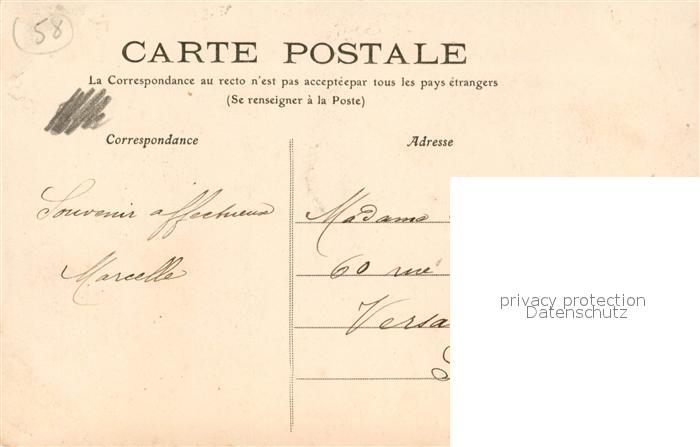 58
CARTE POSTALE
La Correspondance au recto n'est pas acceptéepar tous les pays étrangers
(Se renseigner à la Poste)
Correspondance
Adresse
Souvenir affectueux
Marcelle
Madame
60 rue
Versa
privacy protection
Datenschutz